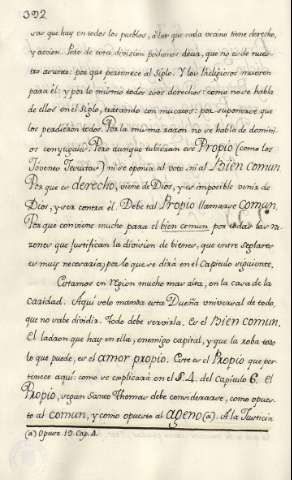 392
sas que hay en todos los pueblos, à las que cada vecino tiene derecho,
y accion. Pero de esta division podemos decir, que no es de nues-
tro asunto: por que pertenece al Siglo. Y los Religiosos mueren
para èl: y por lo mismo todos esos derechos: como no se habla
de ellos en el Siglo, tratando con muertos: por suponerse que
los perdieron todos. Por la misma razon no se habla de domini-
os conyugales. Pero aunque tubiesen ese Propio (como los
Jovenes Jesuitas) ni se oponia al voto, ni al Bien comun.
Por que es derecho, viene de Dios, y es imposible venir de
Dios, y ser contra èl. Debe tal Propio llamarse Comun.
Por que conviene mucho para el bien comun por todas las ra-
zones que justifican la division de bienes, que entre seglares
es muy necesaria; por lo que se dirà en el Capitulo siguiente.
Estamos en region mucho mas alta, en la casa de la
Caridad. Aqui solo manda esta Dueña universal de todo,
que no sabe dividir. Todo debe servirla. Es el Bien comun.
El ladron que hay en ella, enemigo capital, y que la roba todo
lo que puede, es el amor propio. Este es el Propio que per-
tenece aqui: como se explicarà en el §. 4. del Capitulo 6. El
Propio, segun Santo Thomas debe considerarse, como opues-
to al comun, y como opuesto al ageno (a). A la Justicia
(a) Opusc. 19. Cap. 4.